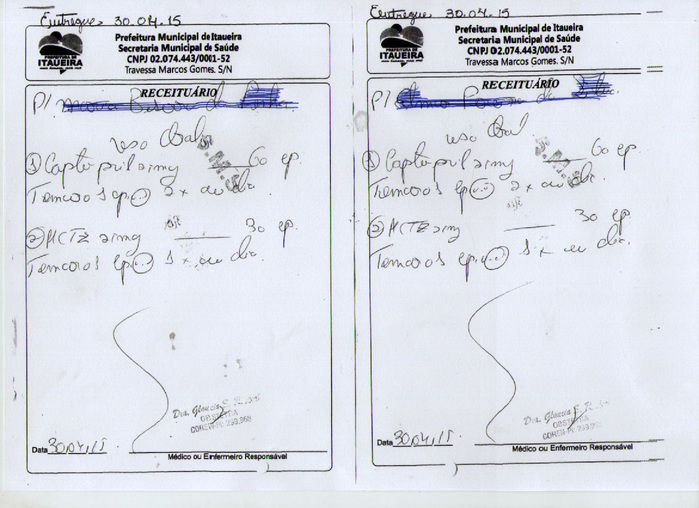 Entregue. 30.04.15
PREFEITURA DE
ITAUEIRA
Prefeitura Municipal de Itaueira
Secretaria Municipal de Saúde
CNPJ 02.074.443/0001-52
Travessa Marcos Gomes. S/N
RECEITUÁRIO
P/
uso Oral
S.M.S
① Captopril 25mg 60 cp.
Tomar 01 cp 2x ao dia
② HCTZ 25mg 30 cp.
Tomar 01 cp 1x ao dia
Dra. Glaucia S.
OBSTETRA
COREN-PI
Data 30.04.15
Médico ou Enfermeiro Responsável
Entregue. 30.04.15
PREFEITURA DE
ITAUEIRA
Prefeitura Municipal de Itaueira
Secretaria Municipal de Saúde
CNPJ 02.074.443/0001-52
Travessa Marcos Gomes. S/N
RECEITUÁRIO
P/
uso Oral
S.M.S
① Captopril 25mg 60 cp.
Tomar 01 cp 2x ao dia
② HCTZ 25mg 30 cp.
Tomar 01 cp 1x ao dia
Dra. Glaucia S.
OBSTETRA
COREN-PI
Data 30.04.15
Médico ou Enfermeiro Responsável